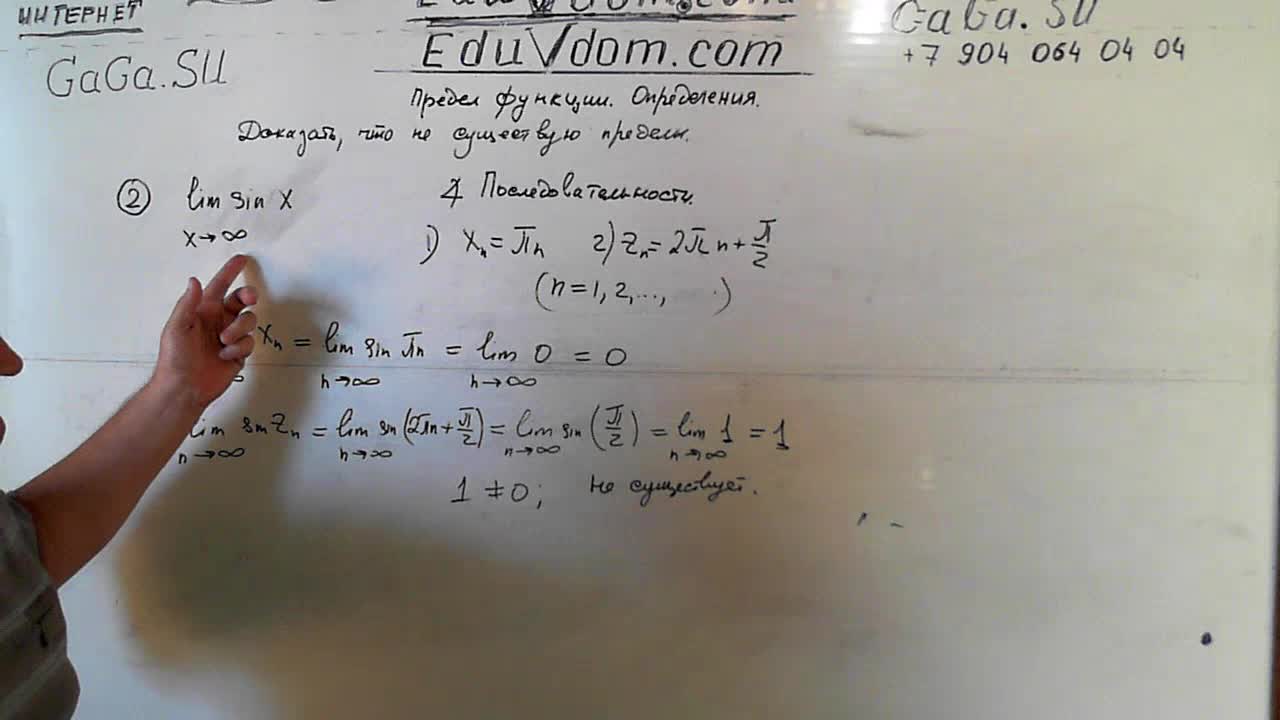 ИНТЕРНЕТ
GaGa.SU
EduVdom.com
GaGa.SU
+7 904 064 04 04
Предел функции. Определения.
Доказать, что не существую пределы.
② lim sin x
x→∞
Последовательности.
1) xₙ = πn 2) zₙ = 2πn + π/2
(n = 1, 2, ..., )
xₙ = lim sin πn = lim 0 = 0
n→∞ n→∞
lim sin zₙ = lim sin(2πn + π/2) = lim sin(π/2) = lim 1 = 1
n→∞ n→∞ n→∞ n→∞
1 ≠ 0; не существует.